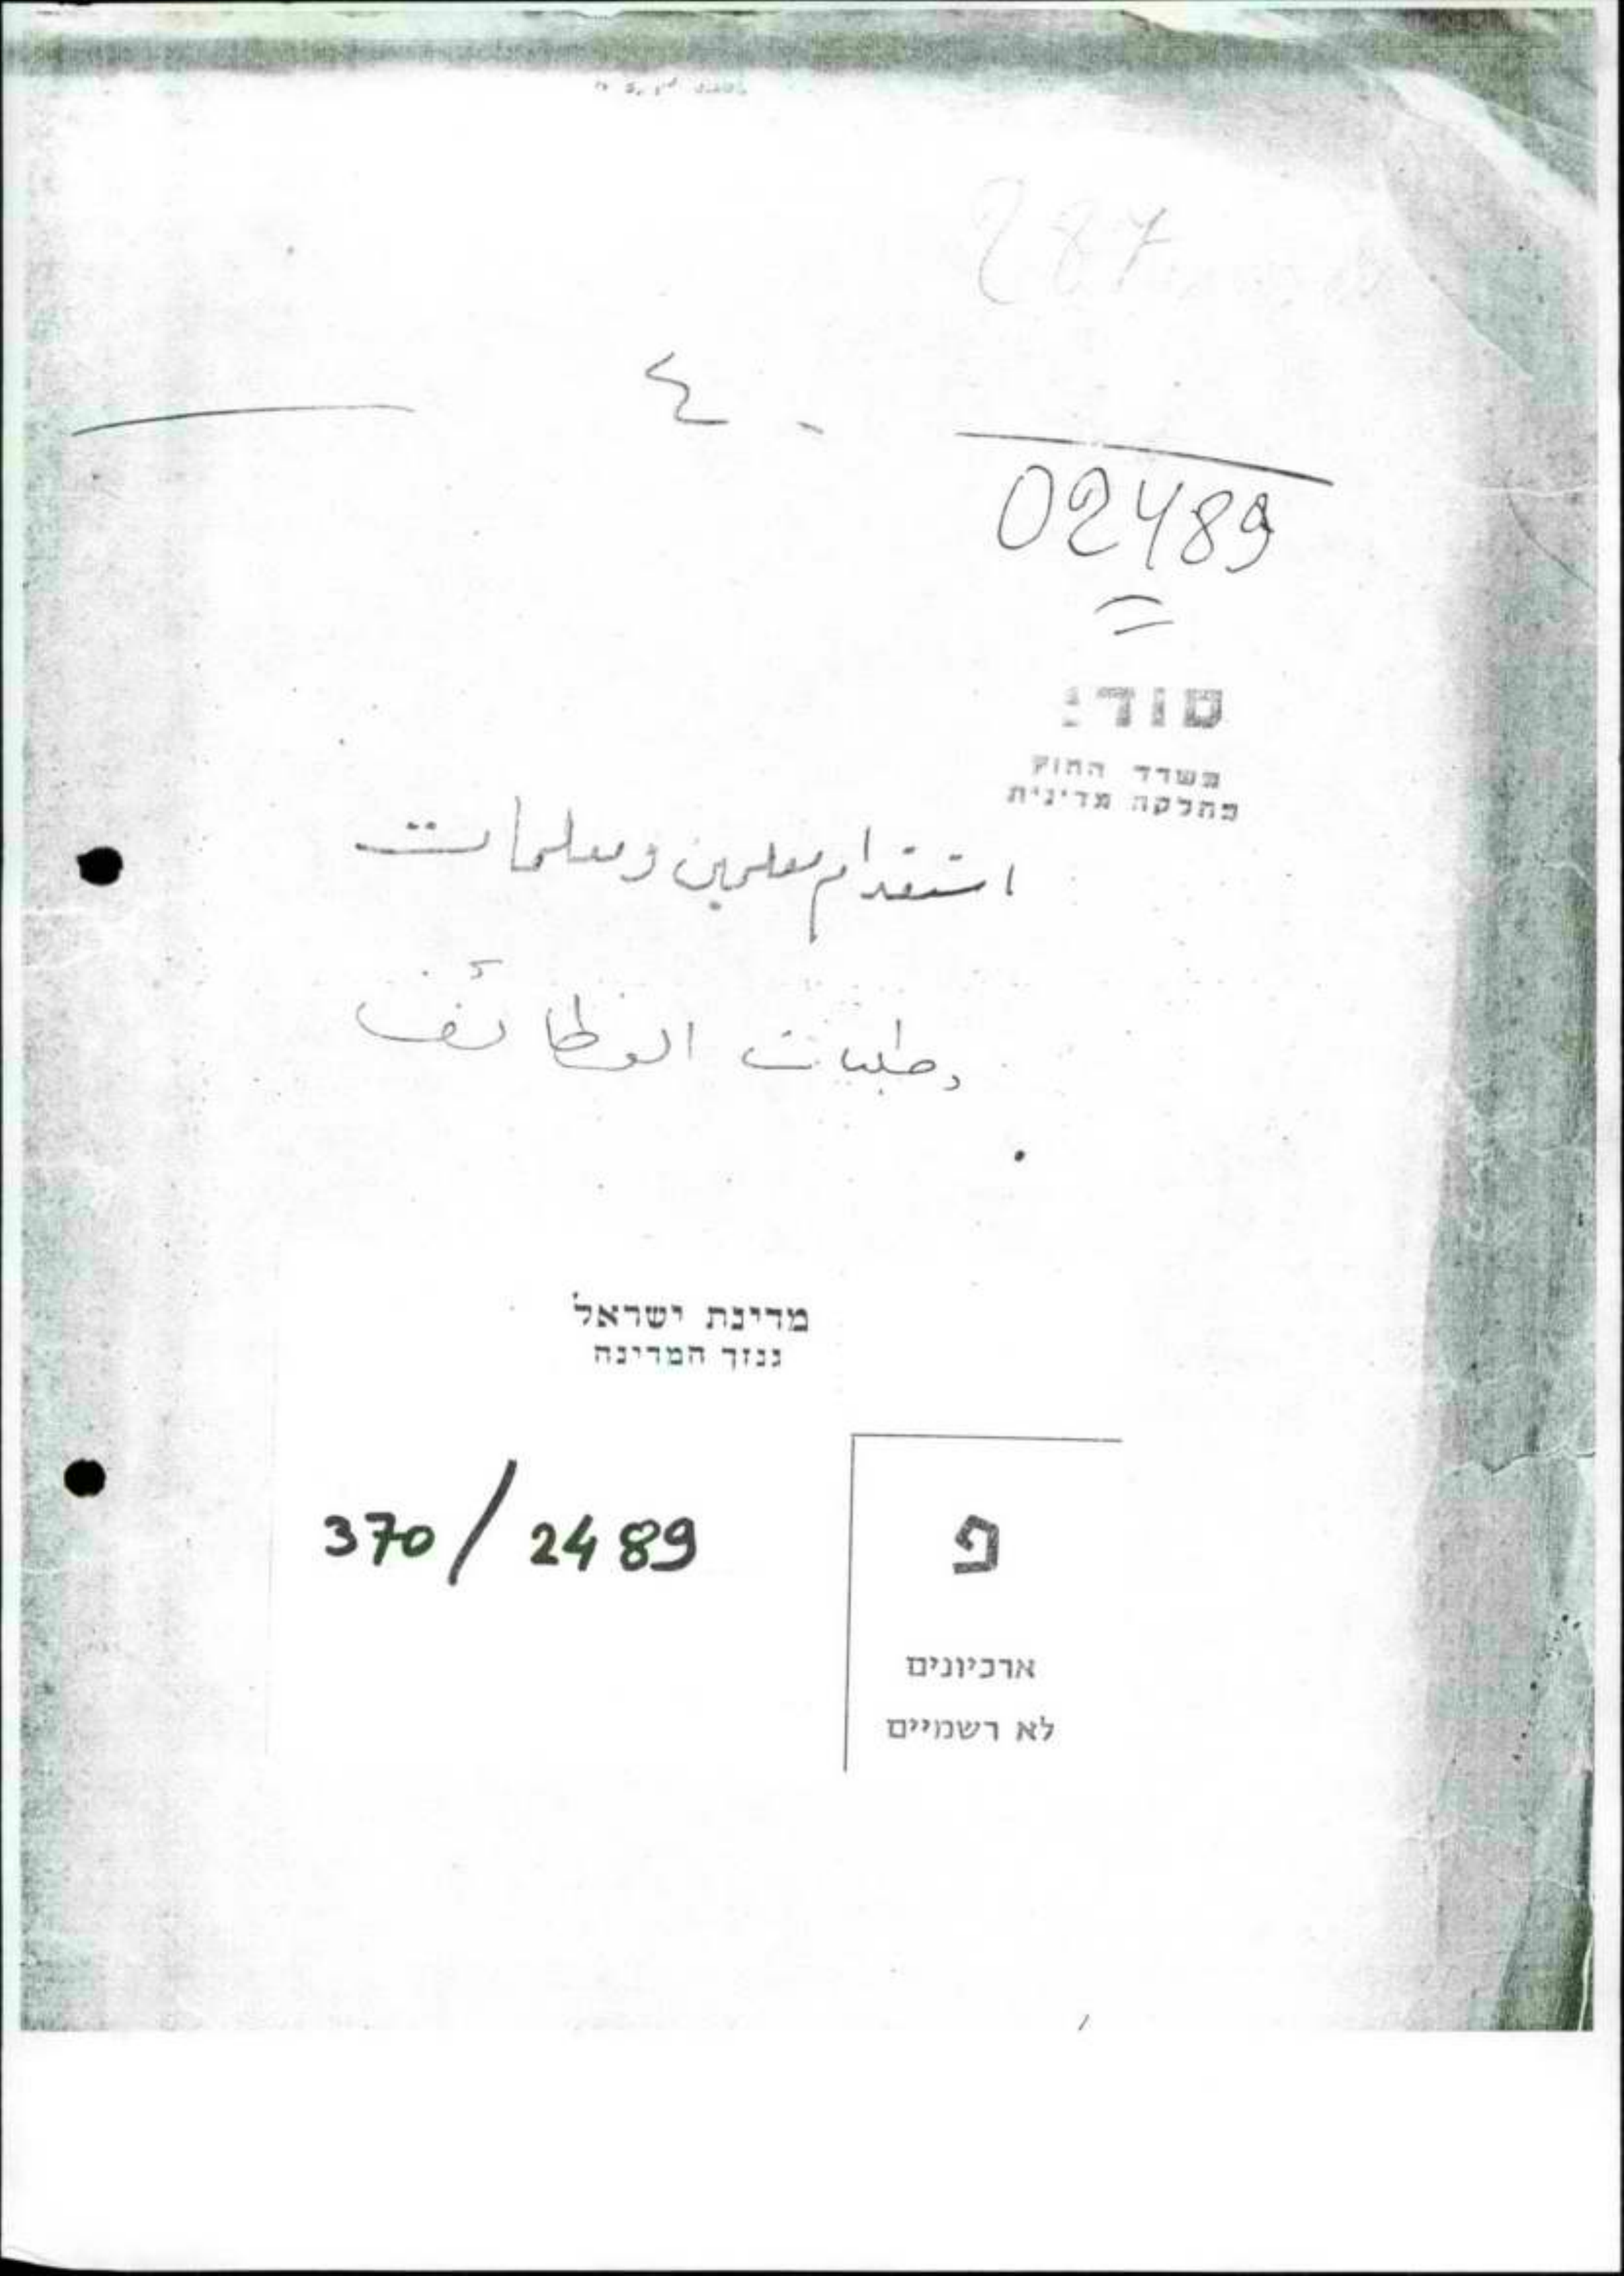 287
٤ -
02489
סודי
משרד החוץ
מחלקה מדינית
استقدام معلمين ومعلمات
وطلبات الوظائف
מדינת ישראל
גנזך המדינה
370/2489
פ
ארכיונים
לא רשמיים